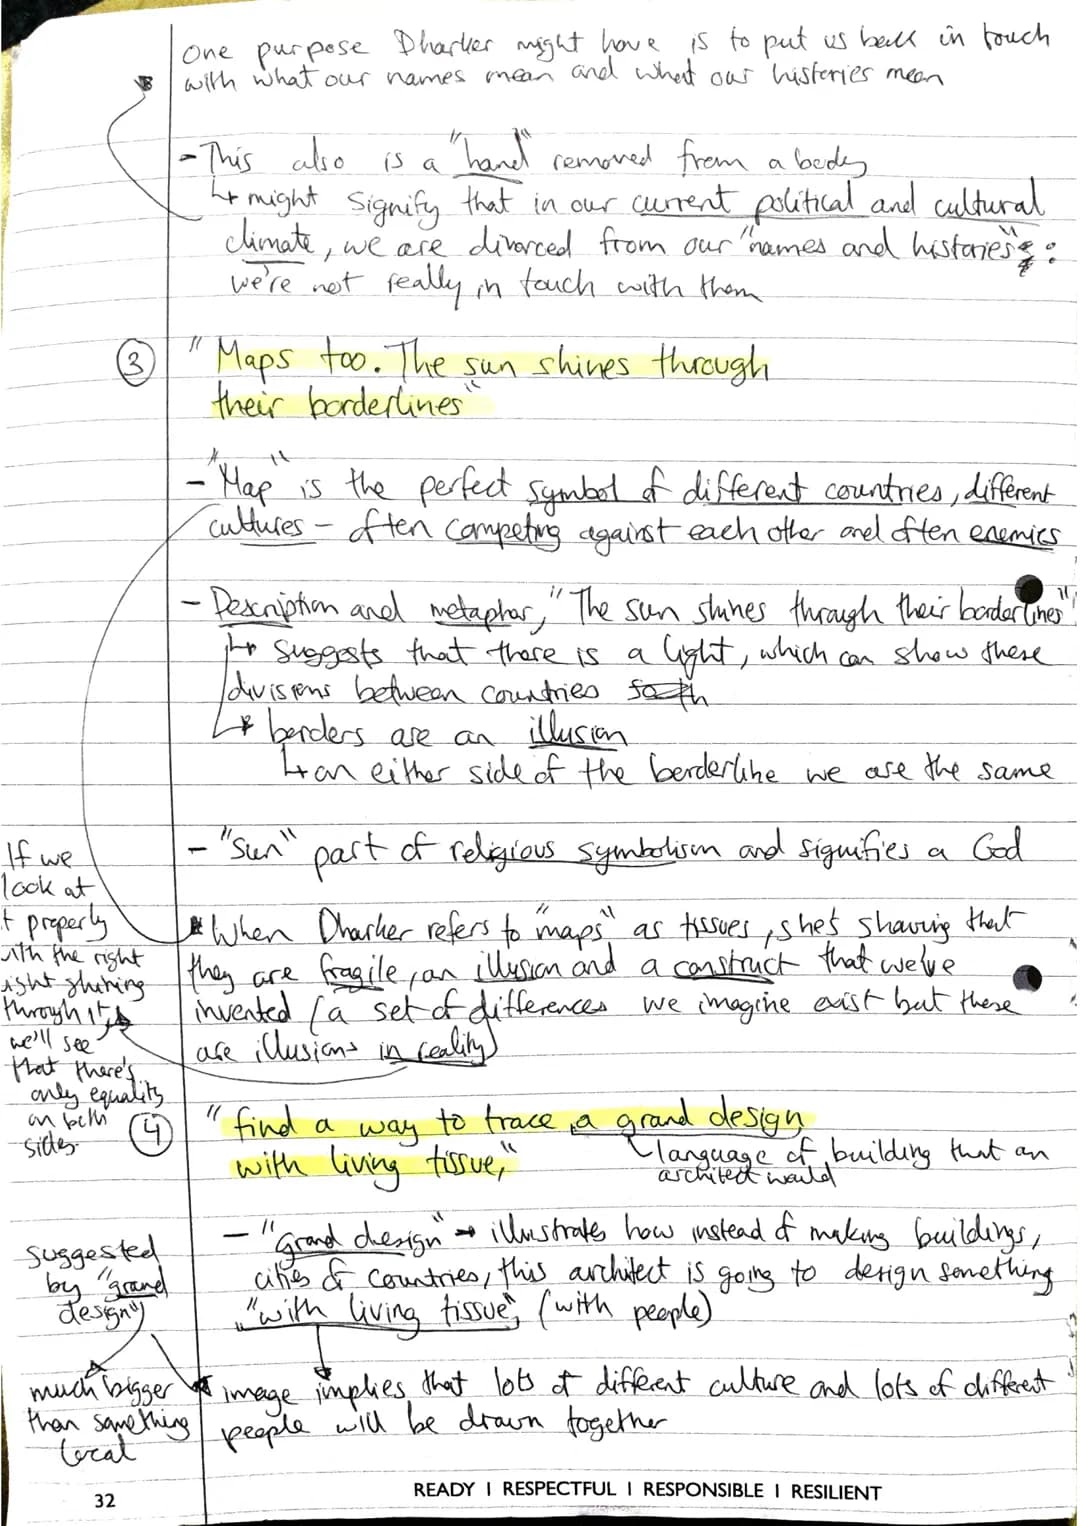 One purpose Dharker might have is to put us back in touch
with what our names mean and what our histories mean
- This also is a "hand" removed from a body
↳ might signify that in our current political and cultural
climate, we are divorced from our "names and histories":
we're not really in touch with them
③ "Maps too. The sun shines through
their borderlines"
- "Map" is the perfect symbol of different countries, different
cultures - often competing against each other and often enemies
- Description and metaphor, "The sun shines through their borderlines"
↳ suggests that there is a light, which can show these
divisions between countries
↳ borders are an illusion
↳ on either side of the borderline we are the same
- "Sun" part of religious symbolism and signifies a God
When Dharker refers to "maps" as tissues, she's showing that
they are fragile, an illusion and a construct that we've
invented (a set of differences we imagine exist but these
are illusions in reality)
If we
look at
it properly
with the right
light shining
through it
we'll see
that there's
only equality
on both
sides.
④ "find a way to trace a grand design
with living tissue,"
language of building that an
architect would
- "grand design" → illustrates how instead of making buildings,
cities or countries, this architect is going to design something
"with living tissue", (with people)
suggested
by "grand
design"
much bigger
than something
local
image implies that lots of different culture and lots of different
people will be drawn together
32
READY | RESPECTFUL | RESPONSIBLE | RESILIENT